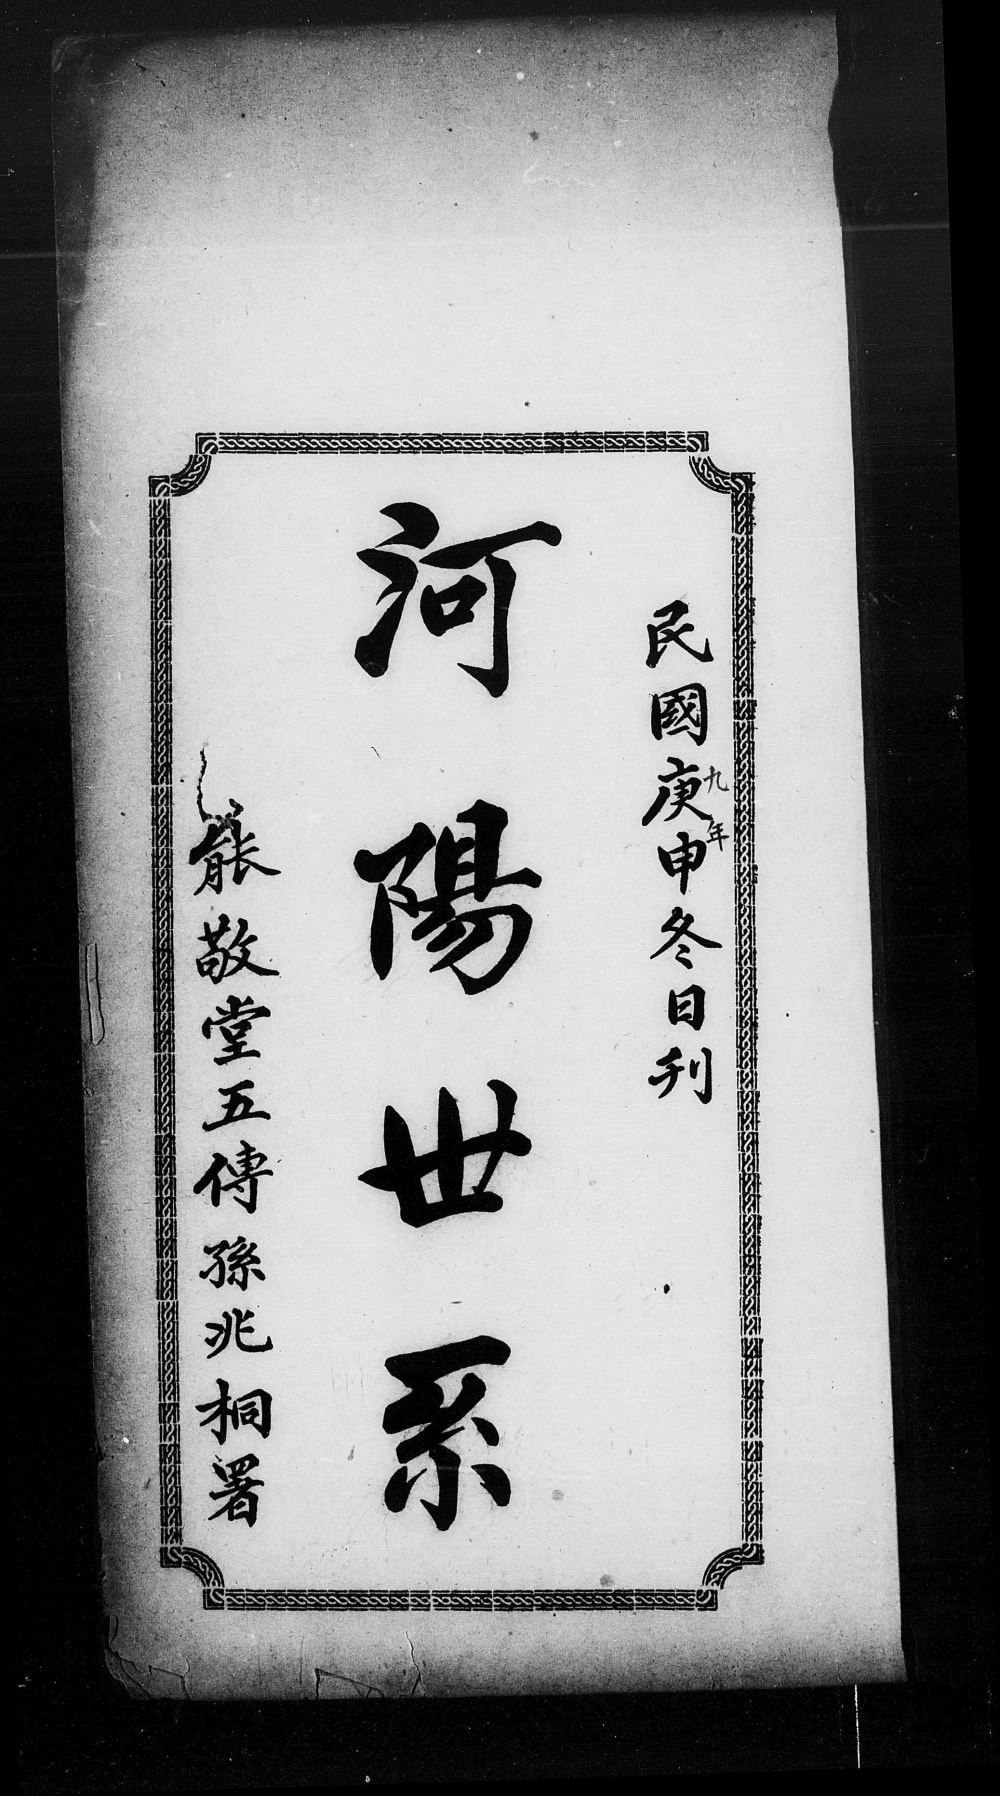 民國庚申冬日刊
九年
河陽世系
敬堂五傳孫兆桐署